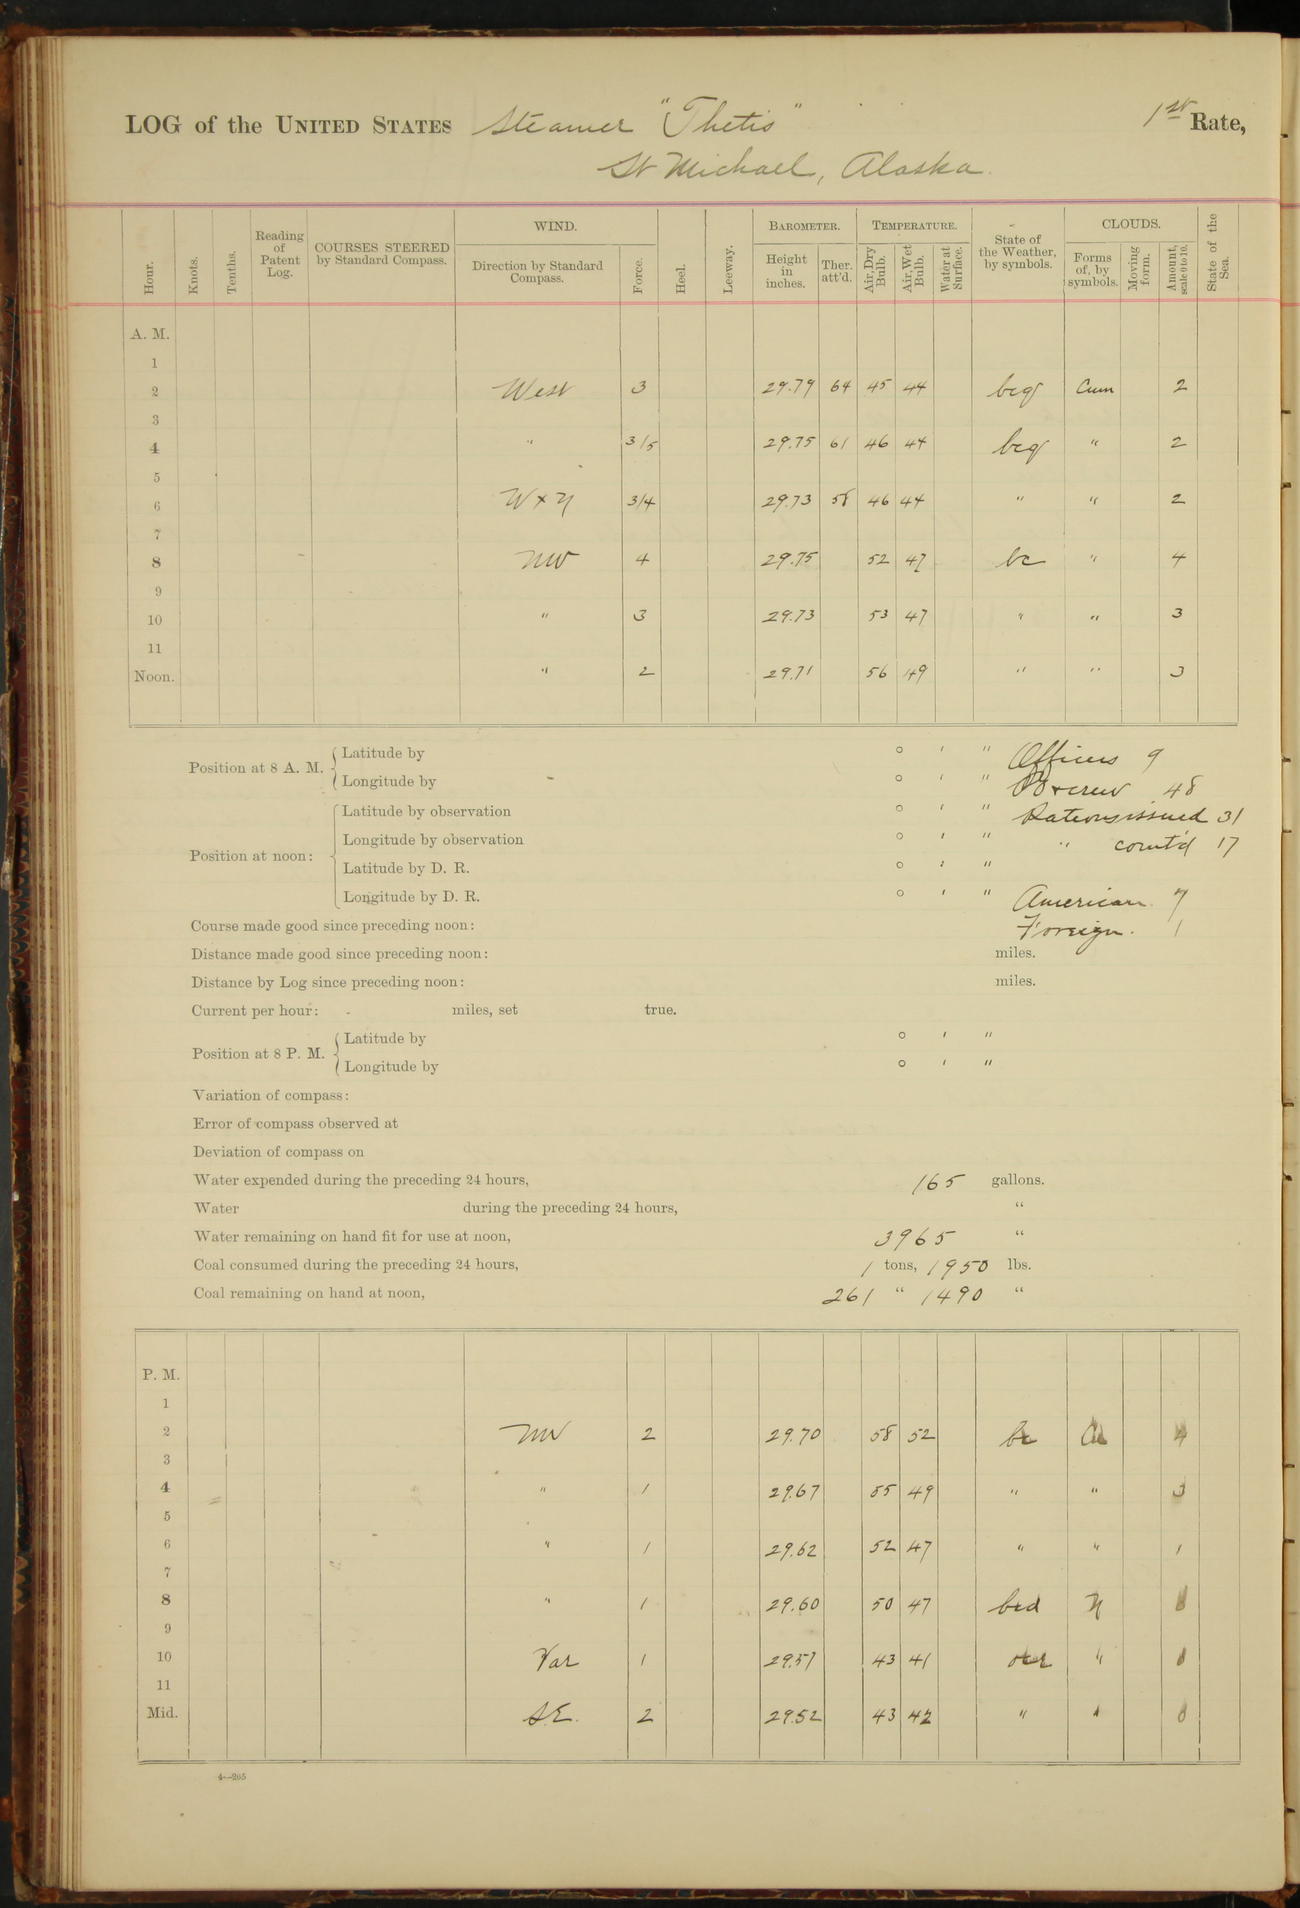 LOG of the UNITED STATES Steamer "Thetis" 1st Rate,
St Michael, Alaska.
Hour. Knots. Tenths. Reading of Patent Log. COURSES STEERED by Standard Compass. WIND. Direction by Standard Compass. Force. Heel. Leeway. BAROMETER. Height in inches. Ther. att'd. TEMPERATURE. Air, Dry Bulb. Air, Wet Bulb. Water at Surface. State of the Weather, by symbols. CLOUDS. Forms of, by symbols. Moving form. Amount, scale 0 to 10. State of the Sea.
A. M.
1
2 West 3 29.79 64 45 44 bcq Cum 2
3
4 " 3/5 29.75 61 46 44 bcq " 2
5
6 W x N 3/4 29.73 58 46 44 " " 2
7
8 NW 4 29.75 52 47 bc " 4
9
10 " 3 29.73 53 47 " " 3
11
Noon. " 2 29.71 56 49 " " 3
Position at 8 A. M. Latitude by ° ' " Officers 9
Longitude by ° ' " crew 48
Position at noon: Latitude by observation ° ' " Rations issued 31
Longitude by observation ° ' " " comt'd 17
Latitude by D. R. ° ' "
Longitude by D. R. ° ' " American 7
Course made good since preceding noon: Foreign. 1
Distance made good since preceding noon: miles.
Distance by Log since preceding noon: miles.
Current per hour: miles, set true.
Position at 8 P. M. Latitude by ° ' "
Longitude by ° ' "
Variation of compass:
Error of compass observed at
Deviation of compass on
Water expended during the preceding 24 hours, 165 gallons.
Water during the preceding 24 hours, "
Water remaining on hand fit for use at noon, 3965 "
Coal consumed during the preceding 24 hours, 1 tons, 1950 lbs.
Coal remaining on hand at noon, 261 " 1490 "
P. M.
1
2 NW 2 29.70 58 52 bc 4
3
4 " 1 29.67 55 49 " " 3
5
6 " 1 29.62 52 47 " " 1
7
8 " 1 29.60 50 47 N
9
10 Var 1 29.57 43 41 "
11
Mid. S.E. 2 29.52 43 42 " "
4—265